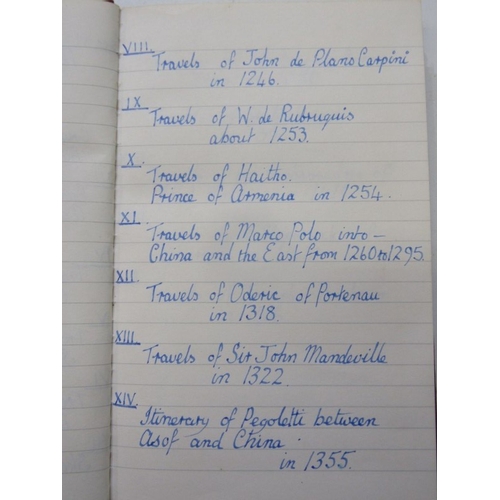 VIII.
Travels of John de Plano Carpini
in 1246.
IX
Travels of W. de Rubruquis
about 1253.
X.
Travels of Haitho.
Prince of Armenia in 1254.
XI.
Travels of Marco Polo into -
China and the East from 1260 to 1295.
XII.
Travels of Oderic of Portenau
in 1318.
XIII.
Travels of Sir John Mandeville
in 1322.
XIV.
Itinerary of Pegoletti between
Asof and China.
in 1355.